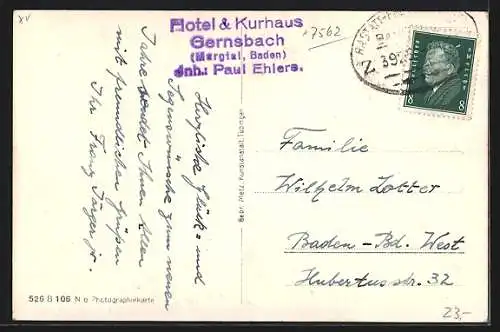 XV
Hotel & Kurhaus
Gernsbach
(Murgtal, Baden)
Inh.: Paul Ehlers.
7562
Herzliche Glück= und
Segenswünsche zum neuen
Jahre sendet Ihnen allen
mit freundlichen Grüßen
Ihr Franz Jäger jr.
Gebr. Metz, Kunstanstalt, Tübingen
Familie
Wilhelm Lotter
Baden-Bd. West
Hubertusstr. 32
526 B 106 N e Photographiekarte
Deutsches Reich
8 8
23,-